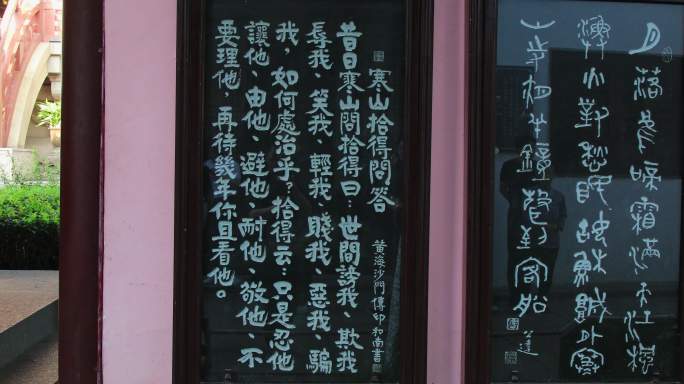 月落烏啼霜滿天江楓
漁火對愁眠姑蘇城外寒
山寺夜半鐘聲到客船
寒山拾得問答
黃海沙門傳印和南書
昔日寒山問拾得曰：世間謗我、欺我
辱我、笑我、輕我、賤我、惡我、騙
我，如何處治乎？拾得云：只是忍他
讓他、由他、避他、耐他、敬他、不
要理他，再待幾年你且看他。